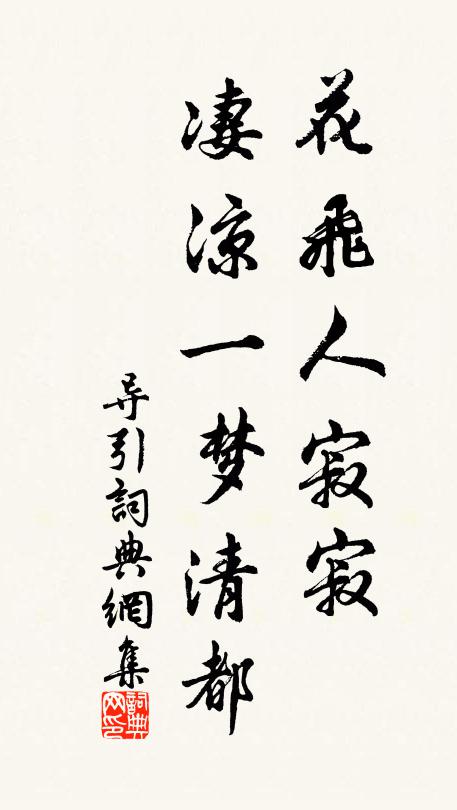 花飛人寂寂
凄凉一梦清都
导引詞典網集
詞典网印